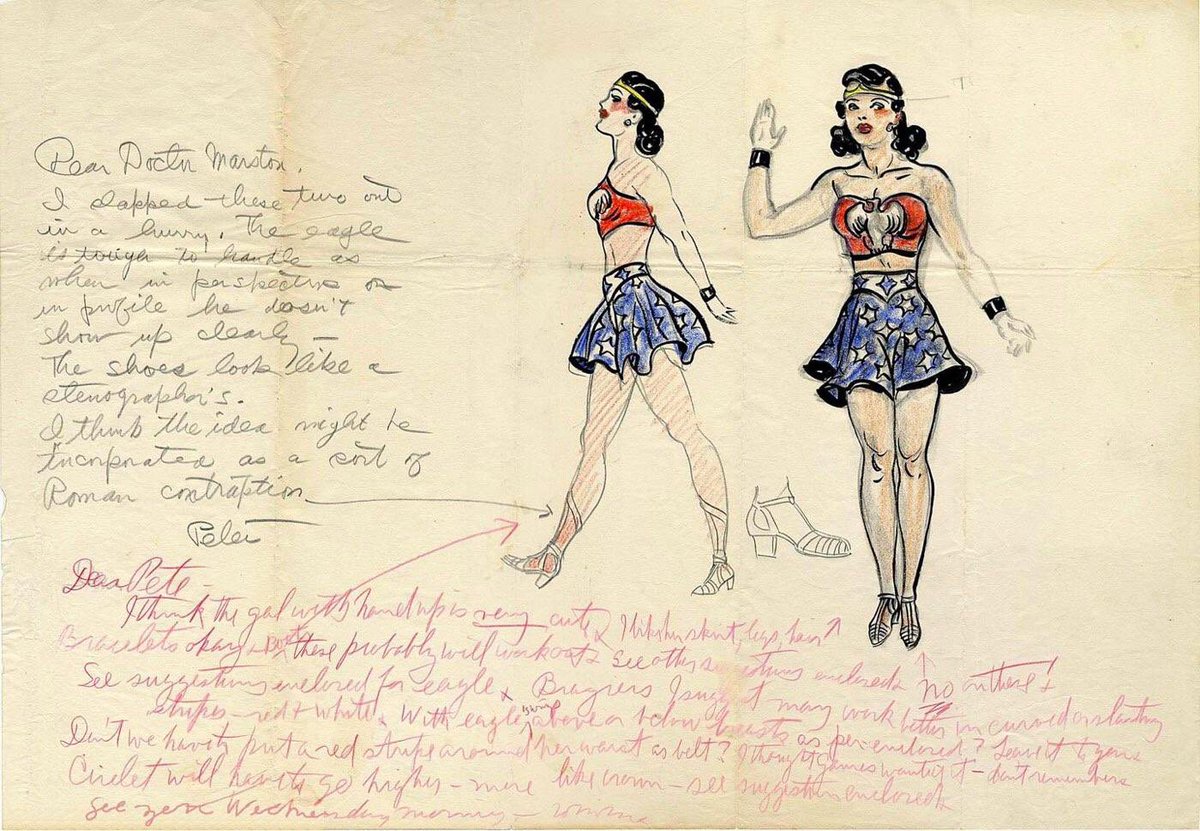 Dear Doctor Marston,
I slapped these two out
in a hurry. The eagle
is tough to handle as
when in perspective or
in profile he doesn't
show up clearly —
The shoes look like a
stenographer's.
I think the idea might be
incorporated as a sort of
Roman contraption
Peter
Dear Pete —
I think the gal with hand up is very cute. I like her skirt, legs, hair.
Bracelets okay + boots. These probably will work out. See other suggestions enclosed. No on these!
See suggestions enclosed for eagle & Brassiere I suggest may work better in curved or slanting
stripes — red + white. With eagle's wing above or below breasts as per enclosed? Leave it to you.
Don't we have to put a red stripe around her waist as belt? I thought Gaines wanted it — don't remember.
Circlet will have to go higher — more like crown — see suggestion enclosed.
See you Wednesday morning —